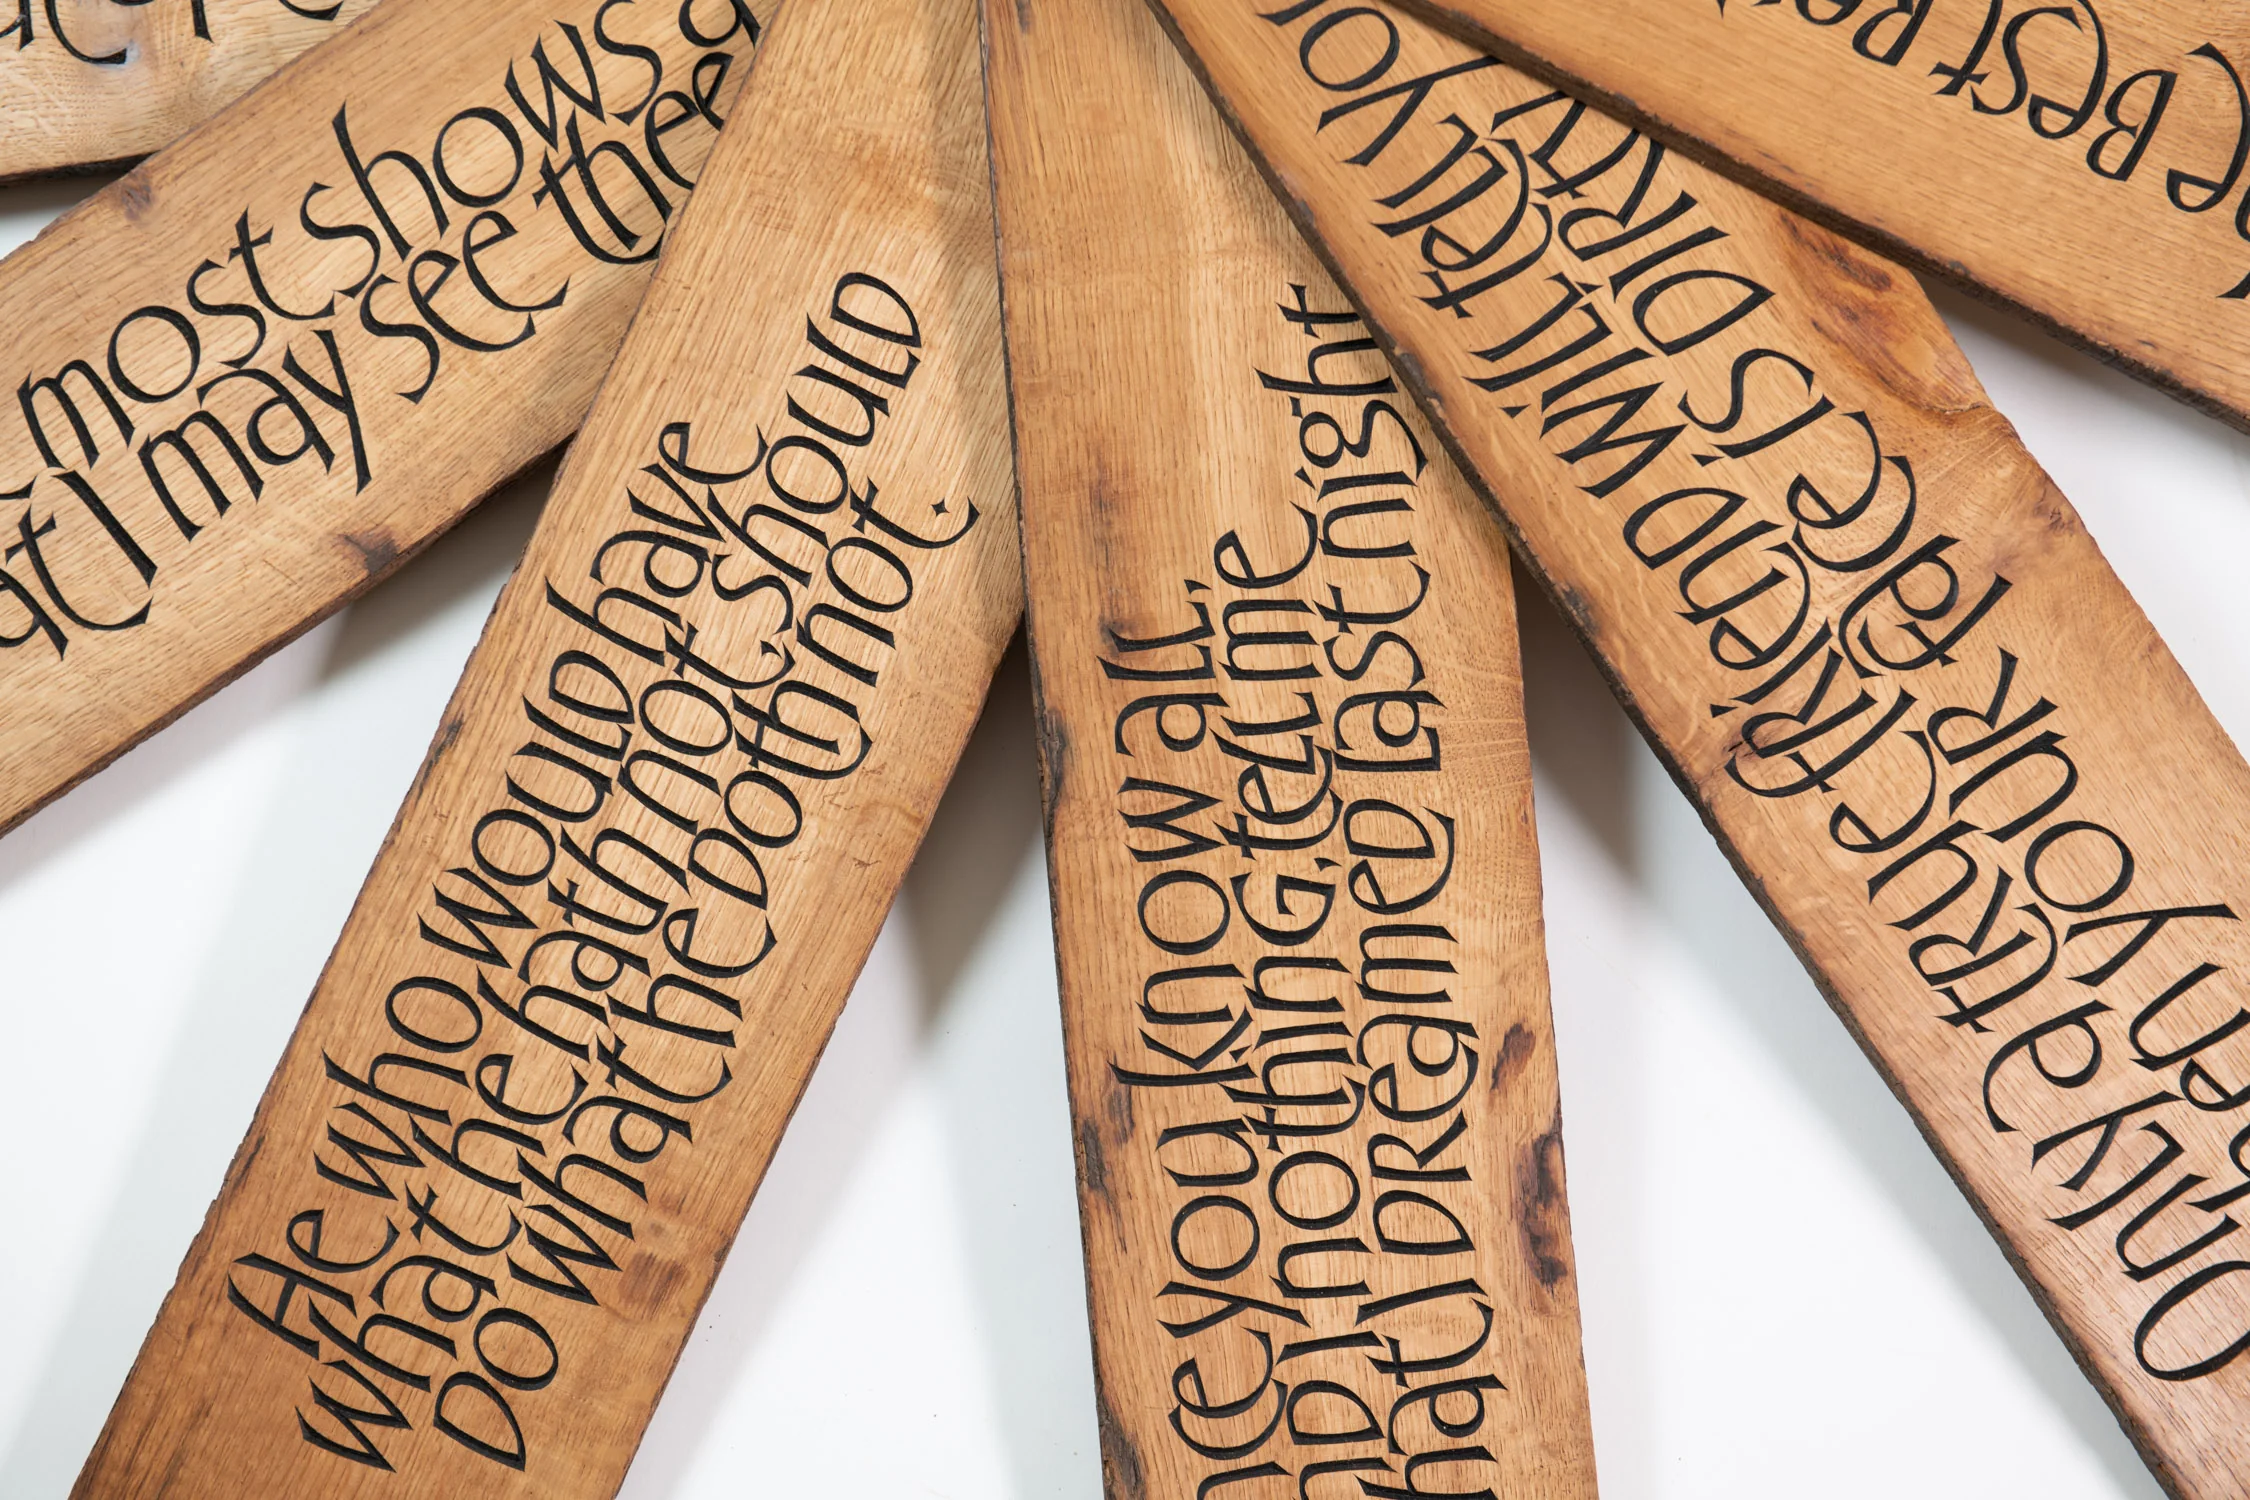 most shows
I may see thee
He who would have
what he hath not, should
DO what he doth not.
you know all,
I nothing, tell me
hat I DReameD Last night
Only a tRue fRienD will tell yo
youR face is DiRty
Best